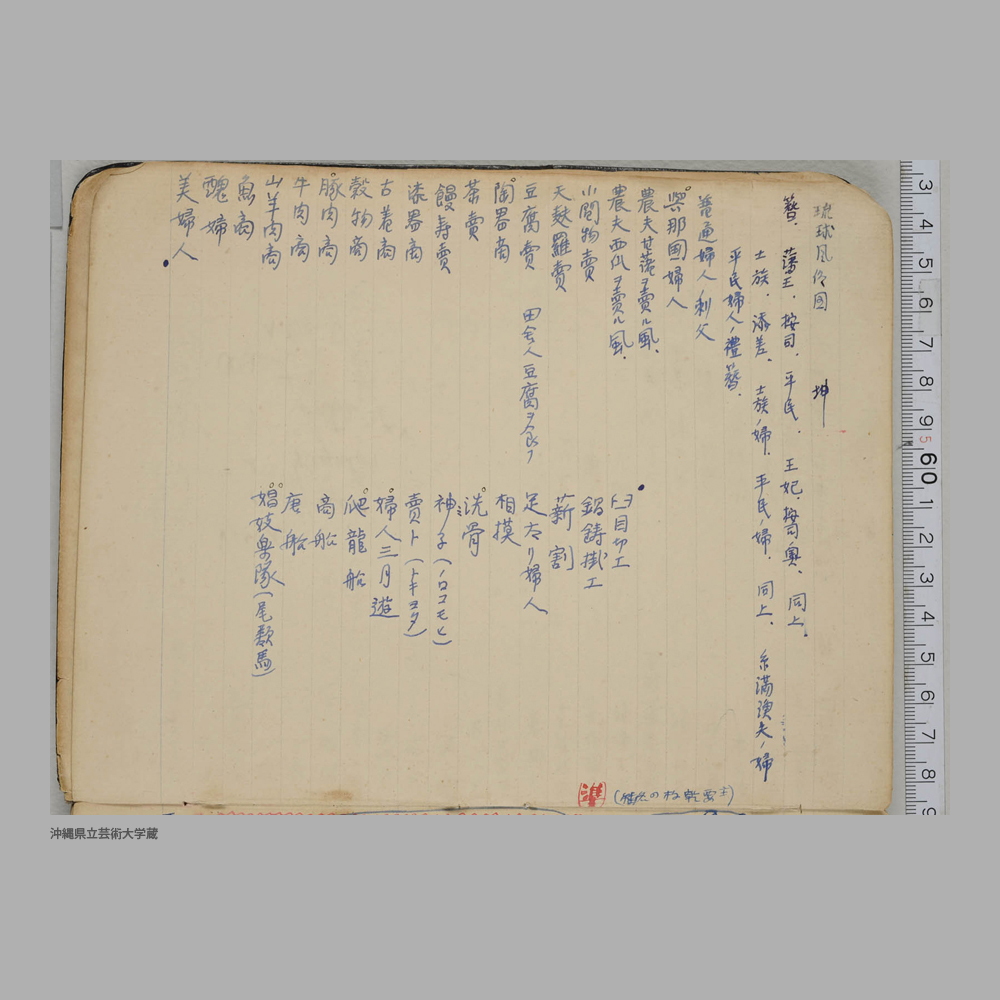 琉球風俗図 坤
簪、藩王、按司、平民、王妃、按司ノ奥、同上、
士族、添差、士族ノ婦、平民ノ婦、同上、糸満漁夫ノ婦
平民婦人ノ禮簪、
普通婦人ノ刺文
與那国婦人
農夫甘藷ヲ賣ル風、
農夫西瓜ヲ賣ル風、
小間物賣
天麩羅賣
豆腐賣 田舎人豆腐ヲ食フ
陶器商
茶賣
饅寿賣
漆器商
古着商
穀物商
豚肉商
牛肉商
山羊肉商
魚商
醜婦
美婦人
臼目切工
鍋鋳掛工
薪割
足太リ婦人
相摸
洗骨
神子(ノロコモヒ)
賣卜(トキヨタ)
婦人三月遊
爬龍船
商船
唐船
娼妓樂隊(尾類馬)
準
3 4 5 6 7 8 9 5 60 1 2 3 4 5 6 7 8 9
沖縄県立芸術大学蔵